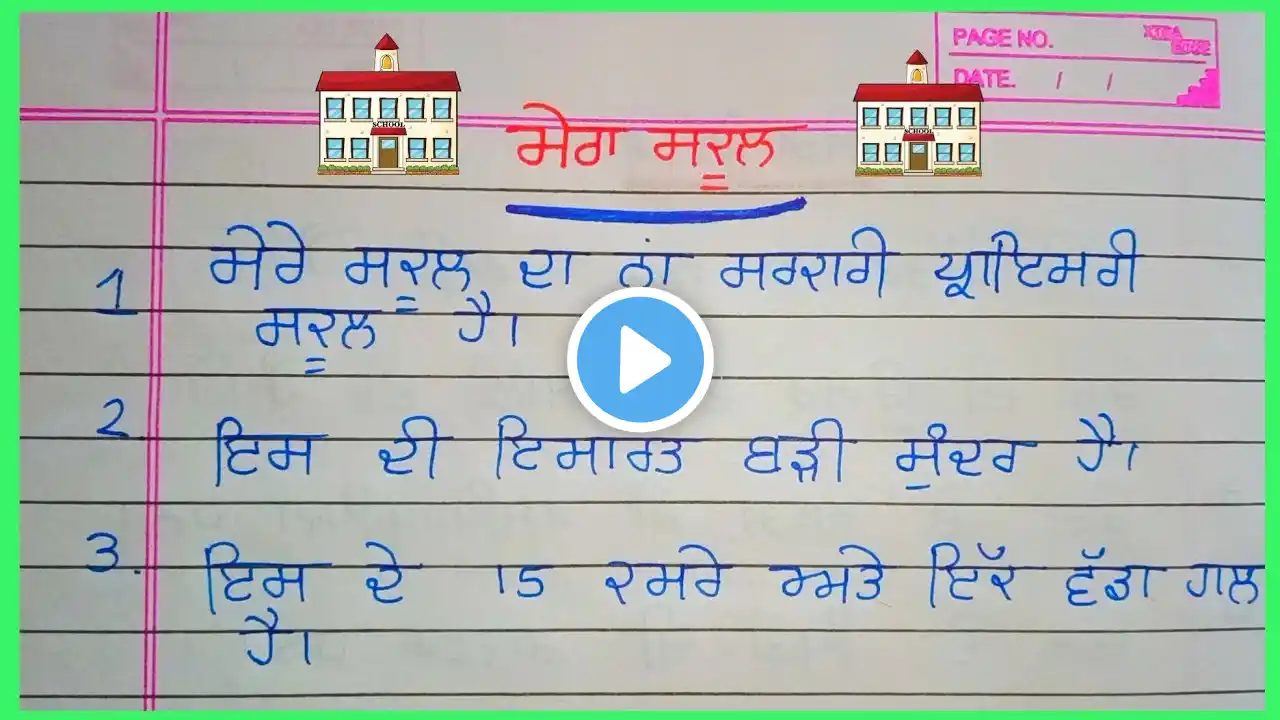 PAGE NO.
DATE. / /
SCHOOL
SCHOOL
ਮੇਰਾ ਸਕੂਲ
1 ਮੇਰੇ ਸਕੂਲ ਦਾ ਨਾਂ ਸਰਕਾਰੀ ਪ੍ਰਾਇਮਰੀ
ਸਕੂਲ ਹੈ।
2. ਇਸ ਦੀ ਇਮਾਰਤ ਬੜੀ ਸੁੰਦਰ ਹੈ।
3. ਇਸ ਦੇ 15 ਕਮਰੇ ਅਤੇ ਇੱਕ ਵੱਡਾ ਹਾਲ
ਹੈ।